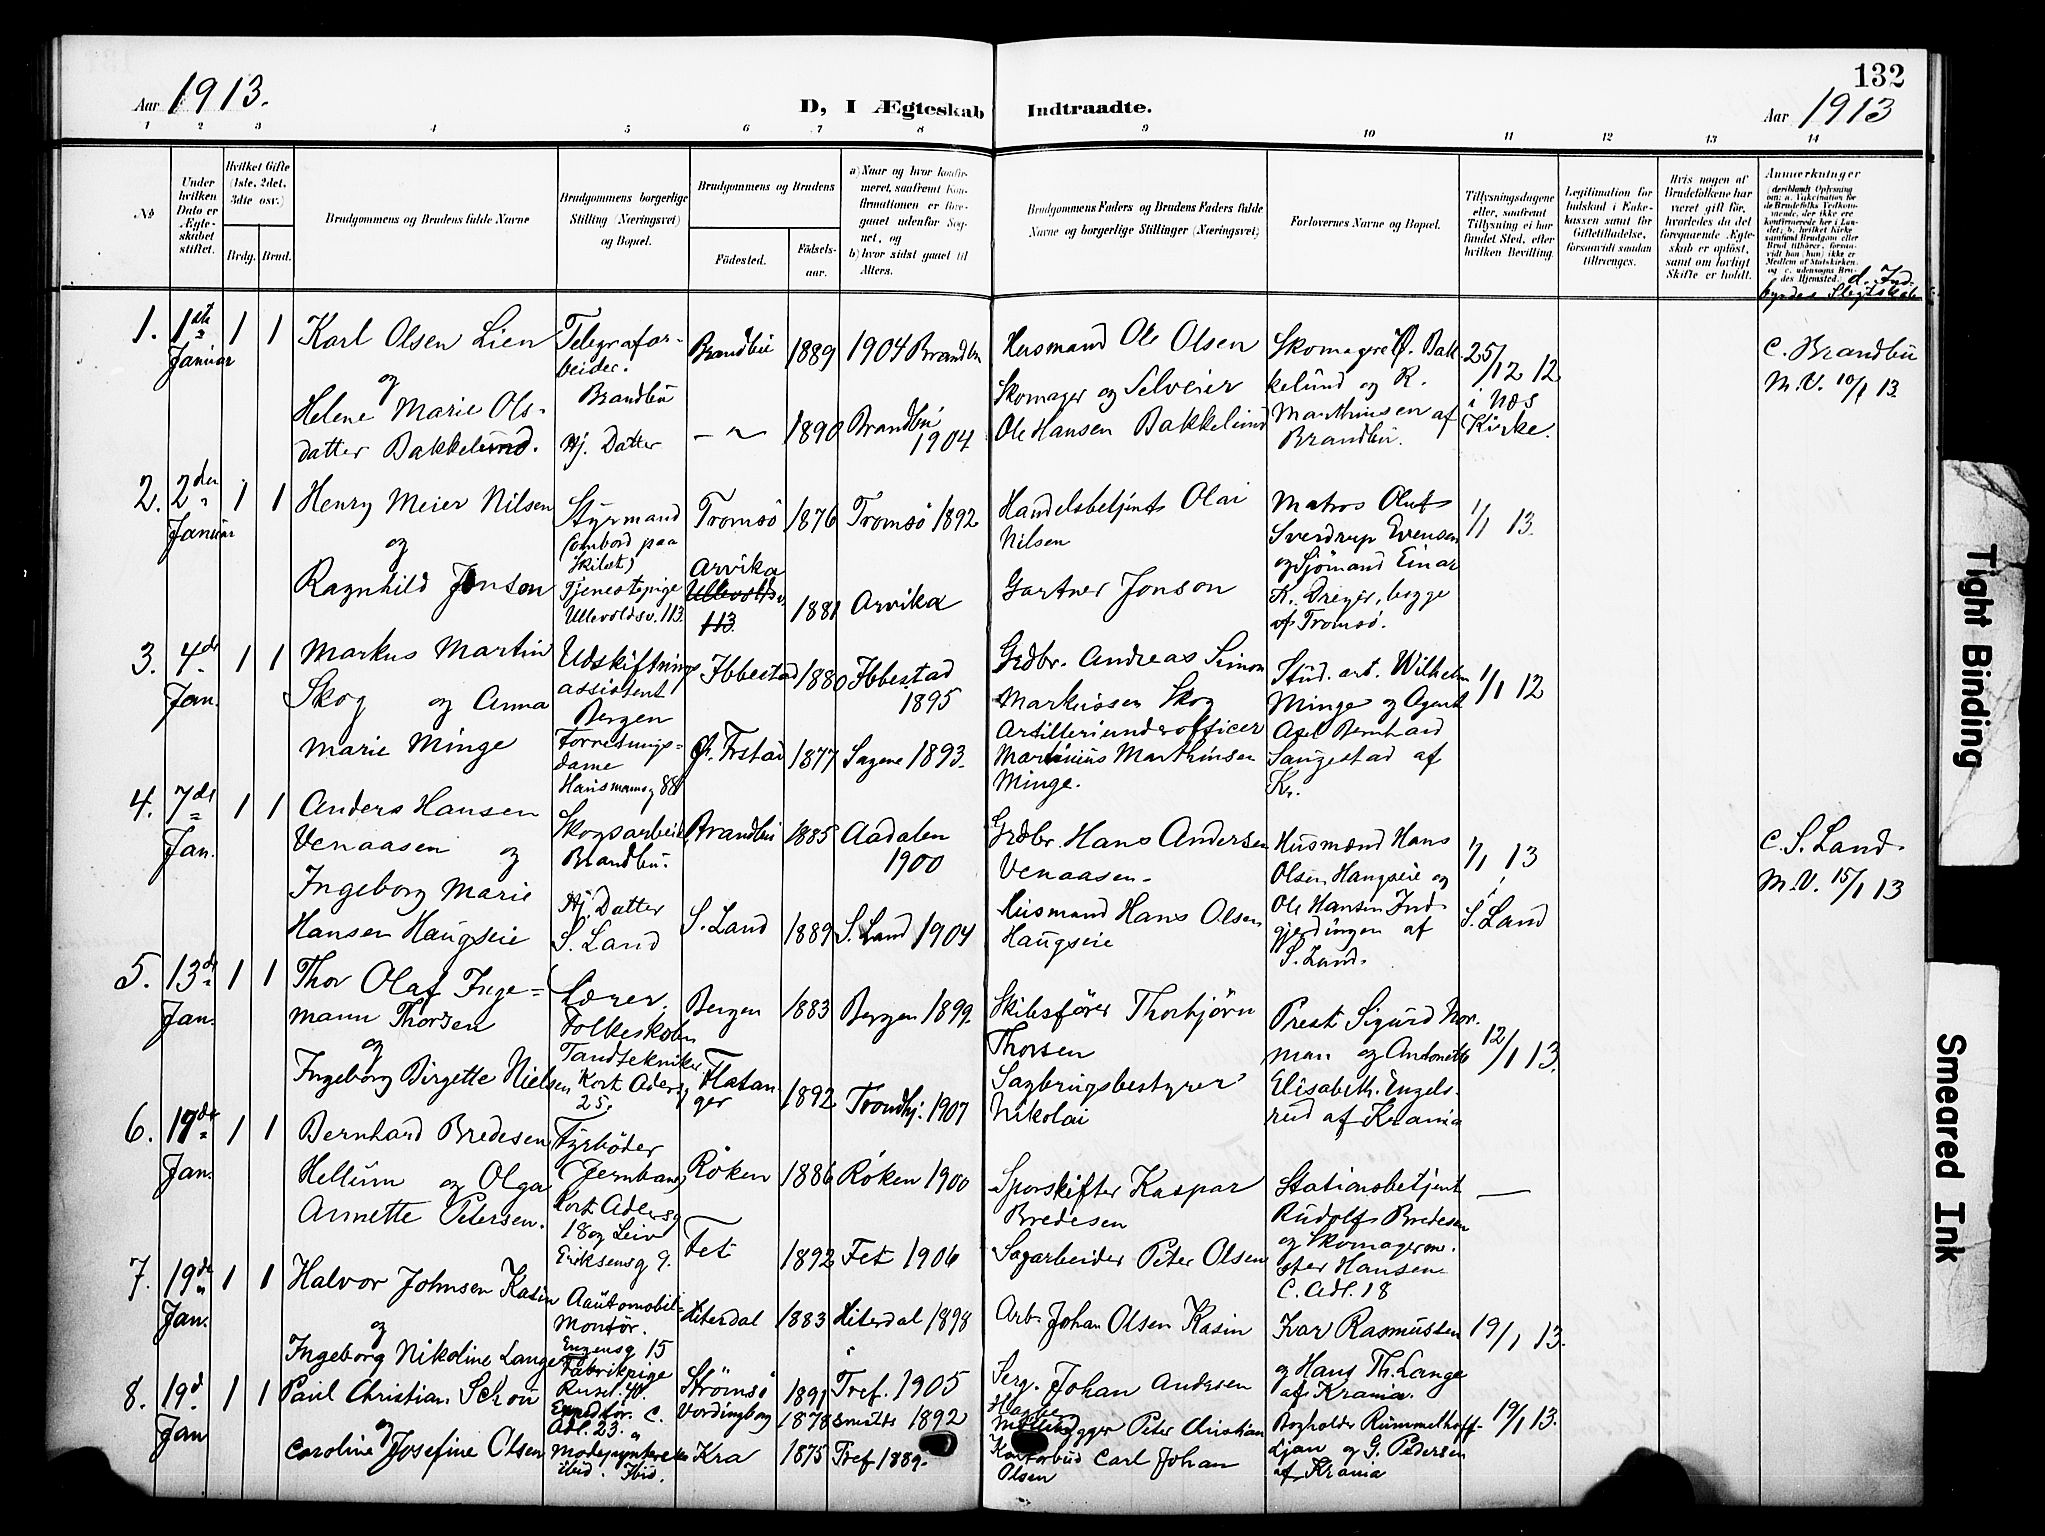 132
Aar 1913.
D, I Ægteskab Indtraadte.
Aar 1913
1 2 3 4 5 6 7 8 9 10 11 12 13 14
No
Under hvilken Dato er Ægteskabet stiftet.
Hvilket Gifte (1ste, 2det, 3die osv.)
Brdg. Brud.
Brudgommens og Brudens fulde Navne
Brudgommens borgerlige Stilling (Næringsvei) og Bopæl.
Brudgommens og Brudens
Födested.
Födsels-aar.
a) Naar og hvor konfirmeret, saafremt Konfirmationen er foregaaet udenfor Sognet, og
b) hvor sidst gaaet til Alters.
Brudgommens Faders og Brudens Faders fulde Navne og borgerlige Stillinger (Næringsvei)
Forlovernes Navne og Bopæl.
Tillysningsdagene eller, saafremt Tillysning ei har fundet Sted, efter hvilken Bevilling.
Legitimation for Indskud i Enkekassen samt for Giftetilladelse, forsaavidt saadan tiltrænges.
Hvis nogen af Brudefolkene har været gift för, hvorledes da det foregaaende Ægteskab er oplöst, samt om lovligt Skifte er holdt.
Anmærkninger
(deriblandt Oplysning om: a. Vaccination for de Brudefolks Vedkommende, der ikke ere konfirmerede her i Landet; b. hvilket Kirkesamfund Brudgom eller Brud tilhörer, forsaavidt han (hun) ikke er Medlem af Statskirken, og c. udensogns Brudes Hjemsted.) d. Ind-
byrdes Slegtskab
1. 1ste Januar 1 1
Karl Olsen Lien
og
Helene Marie Ols-
datter Bakkelund.
Telegrafar-
beider.
Brandbu
Hj. Datter
Brandbu 1889 1904 Brandbu
— " — 1890 Brandbu 1904
Husmand Ole Olsen
Skomager og Selveier
Ole Hansen Bakkelund
Skomager Ø. Bak-
kelund og K.
Marthinsen af
Brandbu.
25/12 12
i Næs
Kirke.
C. Brandbu
M.V. 10/1 13.
2. 2den Januar 1 1
Henry Meier Nilsen
og
Ragnhild Jonson
Styrmand
(ombord paa
Skibet)
Tjenestepige
Ullevoldsv. 113.
Tromsö 1876 Tromsö 1892
Arvika
Ullevoldsv.
113.
1881 Arvika
Handelsbetjent Olai
Nilsen
Gartner Jonson
Matros Oluf
Sverdrup Evensen
og Sjömand Einar
K. Dreyer, begge
af Tromsö.
1/1 13.
3. 4de Jan. 1 1
Markus Martin
Skog og Anna
Marie Minge
Udskiftnings
assistent
Bergen
Forretnings-
dame
Hausmannsg 88
Ibbestad 1880 Ibbestad
1895
Ø. Frstad 1877 Sagene 1893.
Grdbr. Andreas Simon
Markussen Skog
Artilleriunderofficer
Martinius Marthinsen
Minge.
Stud. art. Wilhelm
Minge og Agent
Axel Bernhard
Saugestad af
Kr.
1/1 12
4. 7de Jan. 1 1
Anders Hansen
Venaasen og
Ingeborg Marie
Hansen Haugseie
Skogsarbeid
Brandbu.
Hj. Datter
S. Land
Brandbu 1885 Aadalen
1900
S. Land 1889 S. Land 1904
Grdbr. Hans Andersen
Venaasen.
Husmand Hans Olsen
Haugseie
Husmand Hans
Olsen Haugseie og
Ole Hansen Ind-
gjerdingen af
S. Land.
1/1 13
i
S. Land
C. S. Land.
M.V. 15/1 13
5. 13de Jan. 1 1
Thor Olaf Inge-
mann Thorsen
og
Ingeborg Birgette Nielsen
Lærer,
Folkeskolen
Tandtekniker
Kort Adelersg
25.
Bergen 1883 Bergen 1899.
Flatan-
ger 1892 Trondhj. 1907
Skibsförer Thorbjörn
Thorsen
Sagbrugsbestyrer
Nikolai
Prest Sigurd Nor-
man og Antonette
Elisabeth Engels-
rud af Krania
12/1 13.
6. 17de Jan. 1 1
Bernhard Bredesen
Hellum og Olga
Annette Petersen.
Fyrböder
(Jernban.)
Kort Adelersg
18 og Leiv
Eriksensg 9.
Röken 1886 Röken 1900
Fet 1892 Fet 1906
Sporskifter Kaspar
Bredesen
Sagarbeider Peter Olsen
Stationsbetjent
Rudolf Bredesen
og Skomagerme-
ster Hansen
C. Adl. 18
—
7. 19de Jan. 1 1
Halvor Johnsen Kasin
og
Ingeborg Nikoline Lange
Aautomobil-
Montör.
Enzensg 15
Fabrikpige
Hiterdal 1883 Hiterdal 1898
Strömsö 1891 Tref. 1905
Arb. Johan Olsen Kasin
Serg. Johan Andersen
Ivar Rasmussen
og Hans Th. Lange
af Krania.
19/1 13.
8. 19d Jan 1 1
Paul Christian Schou
og
Caroline Josefine Olsen
C.
Adl. 23.
Ibid.
Vordingborg 1878 1892
Kra 1875 Tref 1889.
Peter Christian
Kontorbud Carl Johan
Olsen
Bogholder Rummelhoff
Ljan og G. Pedersen
af Krania
19/1 13.
Tight Binding
Smeared Ink